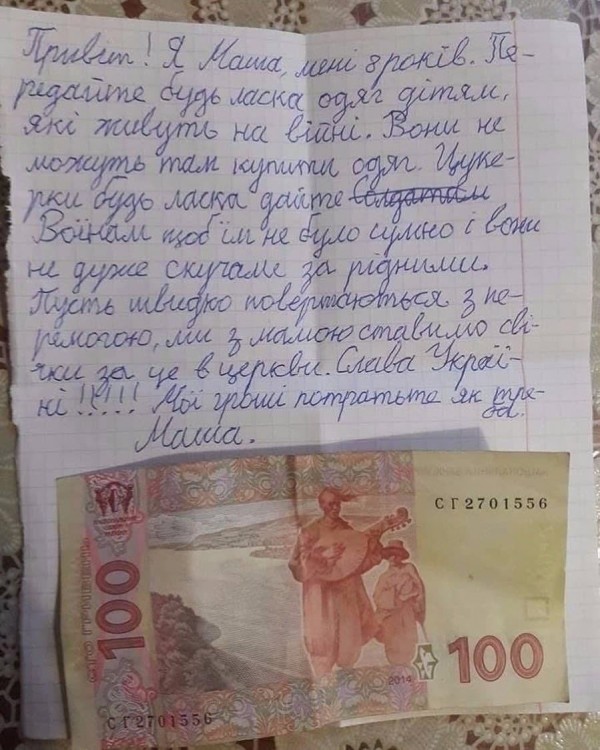 Привіт! Я Маша, мені 8 років. Пе-
редайте будь ласка одяг дітям,
які живуть на війні. Вони не
можуть там купити одяг. Цуке-
рки будь ласка дайте Солдатам
Воїнам щоб їм не було сумно і вони
не дуже скучаме за рідними.
Пусть швидко повертаються з пе-
ремогою, ми з мамою ставимо сві-
чки за це в церкви. Слава Украї-
ні!!!!!! Мої гроші потратьте як тре-
ба.
Маша.
СГ2701556
100
СТО ГРИВЕНЬ
2014
100
СГ2701556